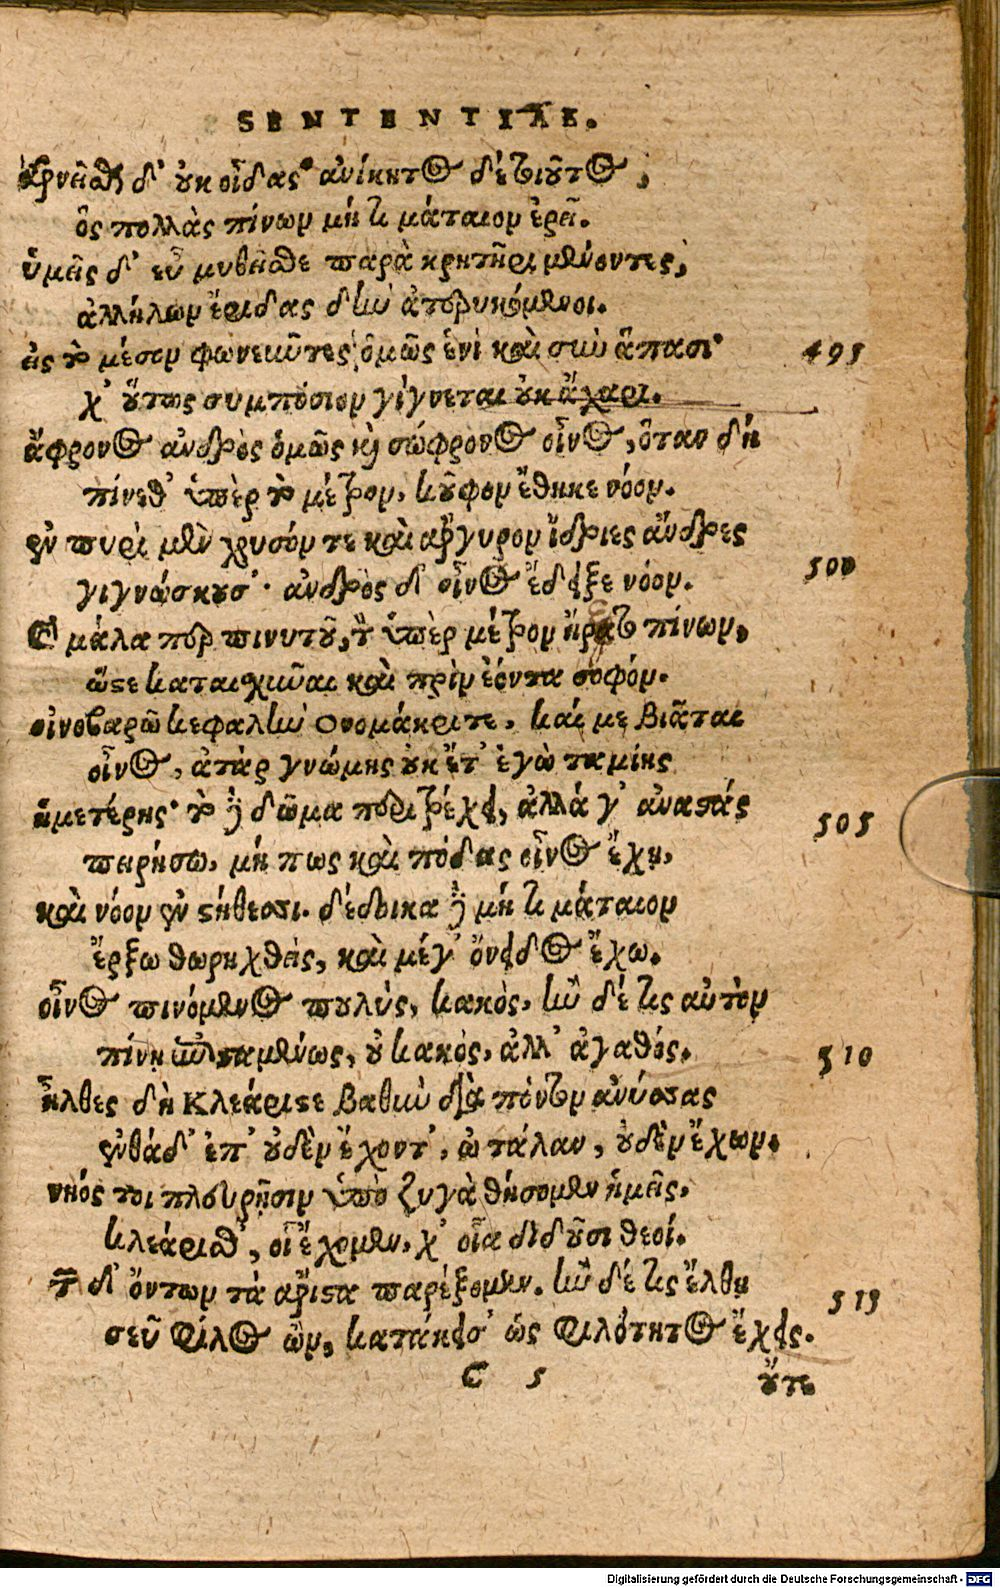 SENTENTIAE.
ἀρνεῖσθαι δ' οὐκ οἶδας· ἀνίκητος δέ τοι οὗτος,
ὃς πολλὰς πίνων μή τι μάταιον ἐρεῖ.
ὑμεῖς δ' εὖ μυθεῖσθε παρὰ κρητῆρι μένοντες,
ἀλλήλων ἔριδας δὴν ἀπερυκόμενοι.
εἰς τὸ μέσον φωνεῦντες ὁμῶς ἑνὶ καὶ σὺν ἅπασι· 495
χ' οὕτως συμπόσιον γίγνεται οὐκ ἄχαρι.
ἄφρονος ἀνδρὸς ὁμῶς καὶ σώφρονος οἶνος, ὅταν δὴ
πίνεθ' ὑπὲρ τὸ μέτρον, κοῦφον ἔθηκε νόον.
ἐν πυρὶ μὲν χρυσόν τε καὶ ἄργυρον ἴδριες ἄνδρες
γιγνώσκουσ'· ἀνδρὸς δ' οἶνος ἔδειξε νόον. 500
καὶ μάλα περ πινυτοῦ, τὸν ὑπὲρ μέτρον ἤρατο πίνων,
ὥστε καταισχῦναι καὶ πρὶν ἐόντα σοφόν.
οἰνοβαρῶ κεφαλὴν Ὀνομάκριτε, καί με βιᾶται
οἶνος, ἀτὰρ γνώμης οὐκ ἔτ' ἐγὼ ταμίης
ἡμετέρης· τὸ δὲ δῶμα περιτρέχει, ἀλλά γ' ἀναστάς 505
πειρήσω, μή πως καὶ πόδας οἶνος ἔχῃ,
καὶ νόον ἐν στήθεσσι. δέδοικα δὲ μή τι μάταιον
ἔρξω θωρηχθείς, καὶ μέγ' ὄνειδος ἔχω.
οἶνος πινόμενος πουλύς, κακός, ἢν δέ τις αὐτὸν
πίνῃ ἐπισταμένως, οὐ κακός, ἀλλ' ἀγαθός. 510
ἦλθες δὴ Κλεάριστε βαθὺν διὰ πόντον ἀνύσσας
ἐνθάδ' ἐπ' οὐδὲν ἔχοντ', ὦ τάλαν, οὐδὲν ἔχων.
νηός τοι πλευρῇσιν ὑπὸ ζυγὰ θήσομεν ἡμεῖς,
κλεάρισθ', οἷ' ἔχομεν, χ' οἷα διδοῦσι θεοί.
τῶν δ' ὄντων τὰ ἄριστα παρέξομεν. ἢν δέ τις ἔλθῃ 515
σεῦ φίλος ὤν, κατάκεισ' ὡς φιλότητος ἔχεις.
C 5 οὔτε
Digitalisierung gefördert durch die Deutsche Forschungsgemeinschaft - DFG